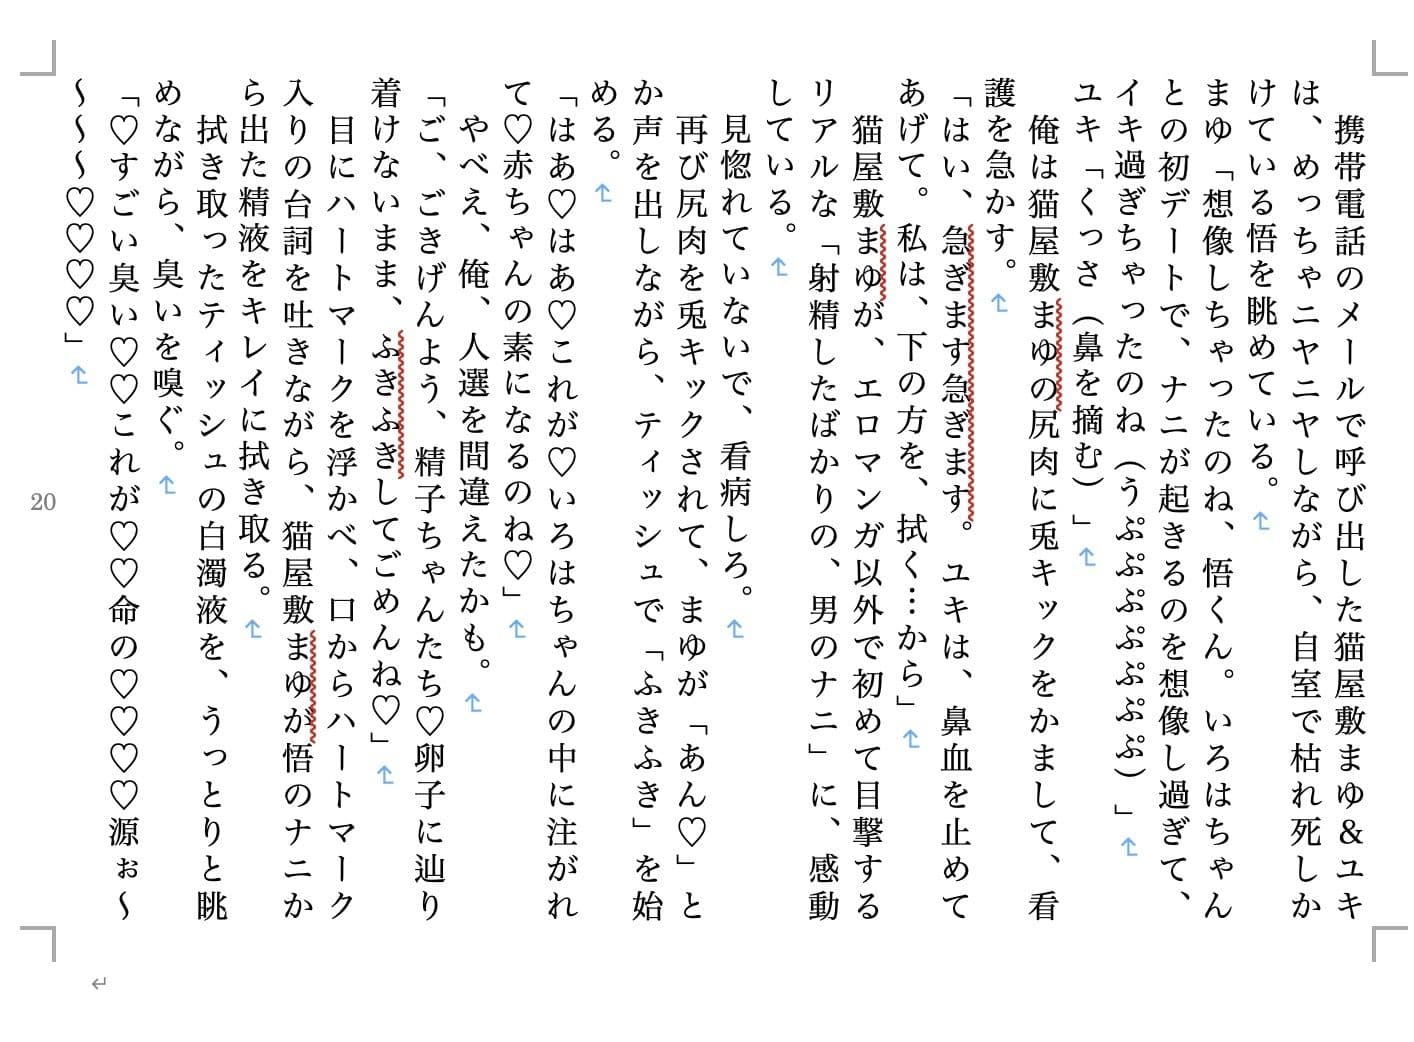 携帯電話のメールで呼び出した猫屋敷まゆ＆ユキ
は、めっちゃニヤニヤしながら、自室で枯れ死しか
けている悟を眺めている。
まゆ「想像しちゃったのね、悟くん。いろはちゃん
との初デートで、ナニが起きるのを想像し過ぎて、
イキ過ぎちゃったのね（うぷぷぷぷぷぷぷ）」
ユキ「くっさ（鼻を摘む）」
俺は猫屋敷まゆの尻肉に兎キックをかまして、看
護を急かす。
「はい、急ぎます急ぎます。ユキは、鼻血を止めて
あげて。私は、下の方を、拭く…から」
猫屋敷まゆが、エロマンガ以外で初めて目撃する
リアルな「射精したばかりの、男のナニ」に、感動
している。
見惚れていないで、看病しろ。
再び尻肉を兎キックされて、まゆが「あん♡」と
か声を出しながら、ティッシュで「ふきふき」を始
める。
「はあ♡はあ♡これが♡いろはちゃんの中に注がれ
て♡赤ちゃんの素になるのね♡」
やべえ、俺、人選を間違えたかも。
「ご、ごきげんよう、精子ちゃんたち♡卵子に辿り
着けないまま、ふきふきしてごめんね♡」
目にハートマークを浮かべ、口からハートマーク
入りの台詞を吐きながら、猫屋敷まゆが悟のナニか
ら出た精液をキレイに拭き取る。
拭き取ったティッシュの白濁液を、うっとりと眺
めながら、臭いを嗅ぐ。
「♡すごい臭い♡♡これが♡♡命の♡♡♡♡源ぉ～
～～～♡♡♡♡」
20